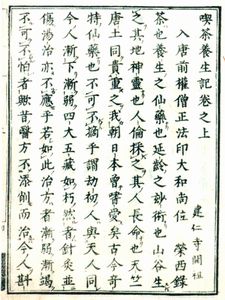 喫茶養生記卷之上
建仁寺開祖
入唐前權僧正法印大和尚位 榮西錄
茶也養生之仙藥也延齡之妙術也山谷生
之其地神靈也人倫採之其人長命也天竺
唐土同貴重之我朝日本曾嗜愛矣古今奇
特仙藥也不可不摘乎謂劫初人與天人同
今人漸下漸弱四大五藏如朽然者針灸並
傷湯治亦不應乎若如此治方者漸弱漸竭
不可不怕者歟昔醫方不添削而治今人斟